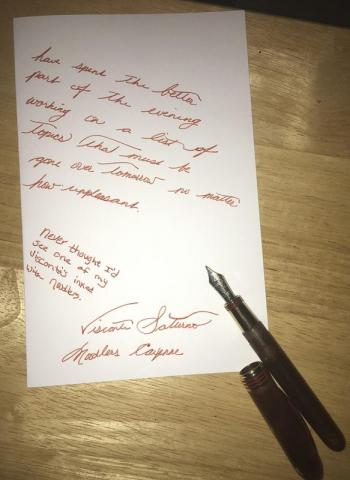 have spent the better
part of the evening
working on a list of
Topics that must be
gone over tomorrow no matter
how unpleasant.
Never thought I'd
see one of my
Visconti's inked
with Noodlers.
Visconti Saturno
Noodlers Cayenne